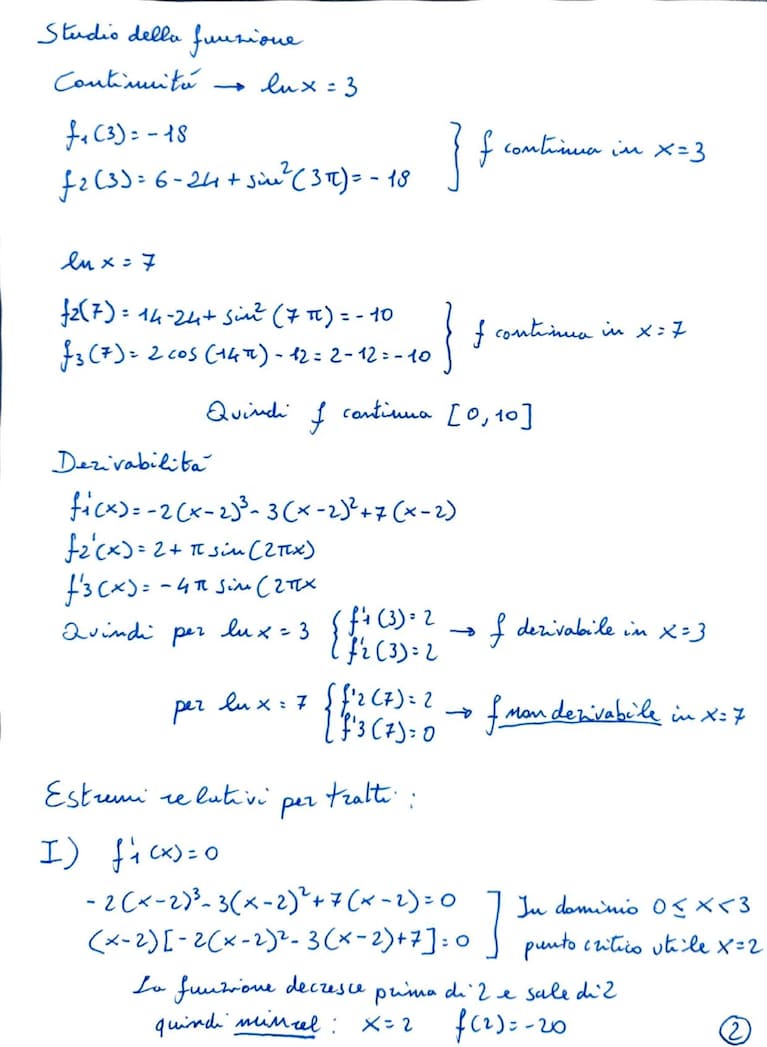 Studio della funzione
Continuitá → In x = 3
f1(3) = -18
f2(3) = 6-24 + sin²(3π) = -18
} f continua in x=3
In x = 7
f2(7) = 14-24 + sin² (7π) = -10
f3(7) = 2 cos (14π) - 12 = 2-12 = -10
} f continua in x=7
Quindi f continua [0,10]
Derivabilitá
f1'(x) = -2(x-2)³ - 3(x-2)² + 7(x-2)
f2'(x) = 2 + π sin(2πx)
f'3(x) = -4π sin(2πx
Quindi per In x = 3 { f'1(3) = 2 f'2(3) = 2 → f derivabile in x=3
per In x = 7 { f'2(7) = 2 f'3(7) = 0 → f non derivabile in x=7
Estremi relativi per tratti :
I) f'1(x) = 0
-2(x-2)³ - 3(x-2)² + 7(x-2) = 0
(x-2)[-2(x-2)² - 3(x-2)+7] = 0
] In dominio 0 ≤ x < 3
punto critico utile x=2
La funzione decresce prima di 2 e sale di 2
quindi : x=2 f(2) = -20
2